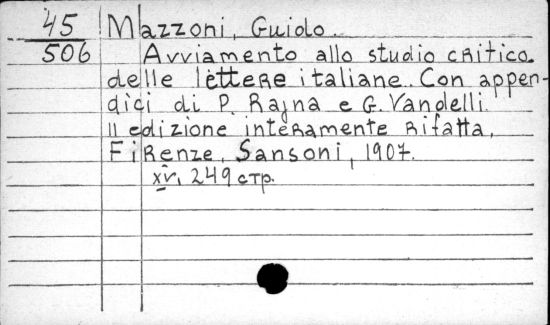 45
506
Mazzoni, Guido.
Avviamento allo studio critico
delle lettere italiane. Con appen-
dici di P. Rajna e G. Vandelli.
II edizione interamente rifatta,
Firenze, Sansoni, 1907.
XV, 249 стр.